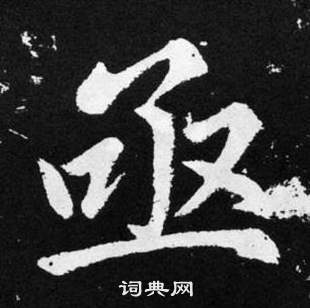 亟
词典网